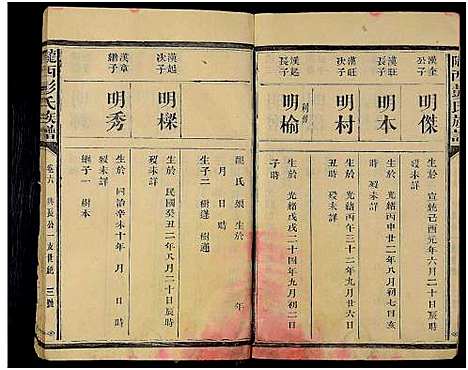 隴西彭氏族譜
漢金公子
明傑
生於宣統己酉元年六月
歿未詳
漢旺次子
明本
生於光緒丙申廿二年八月初七日亥
時歿未詳
漢旺長子
明村
生於光緒丙午三十二年九月初二日
丑時歿未詳
漢起長子
明榆
生於光緒戊戌二十四年九月初二日
子時
漢起次子
明樑
生於民國癸丑二年八月二十日辰時
歿未詳
漢章繼子
明秀
生於同治辛未十年 月 日 時
歿未詳
龍氏
生於 年
月 日 時
生子二 樹遂 樹通
繼子一 樹本
隴西彭氏族譜
卷六
興長公一支世系
三號